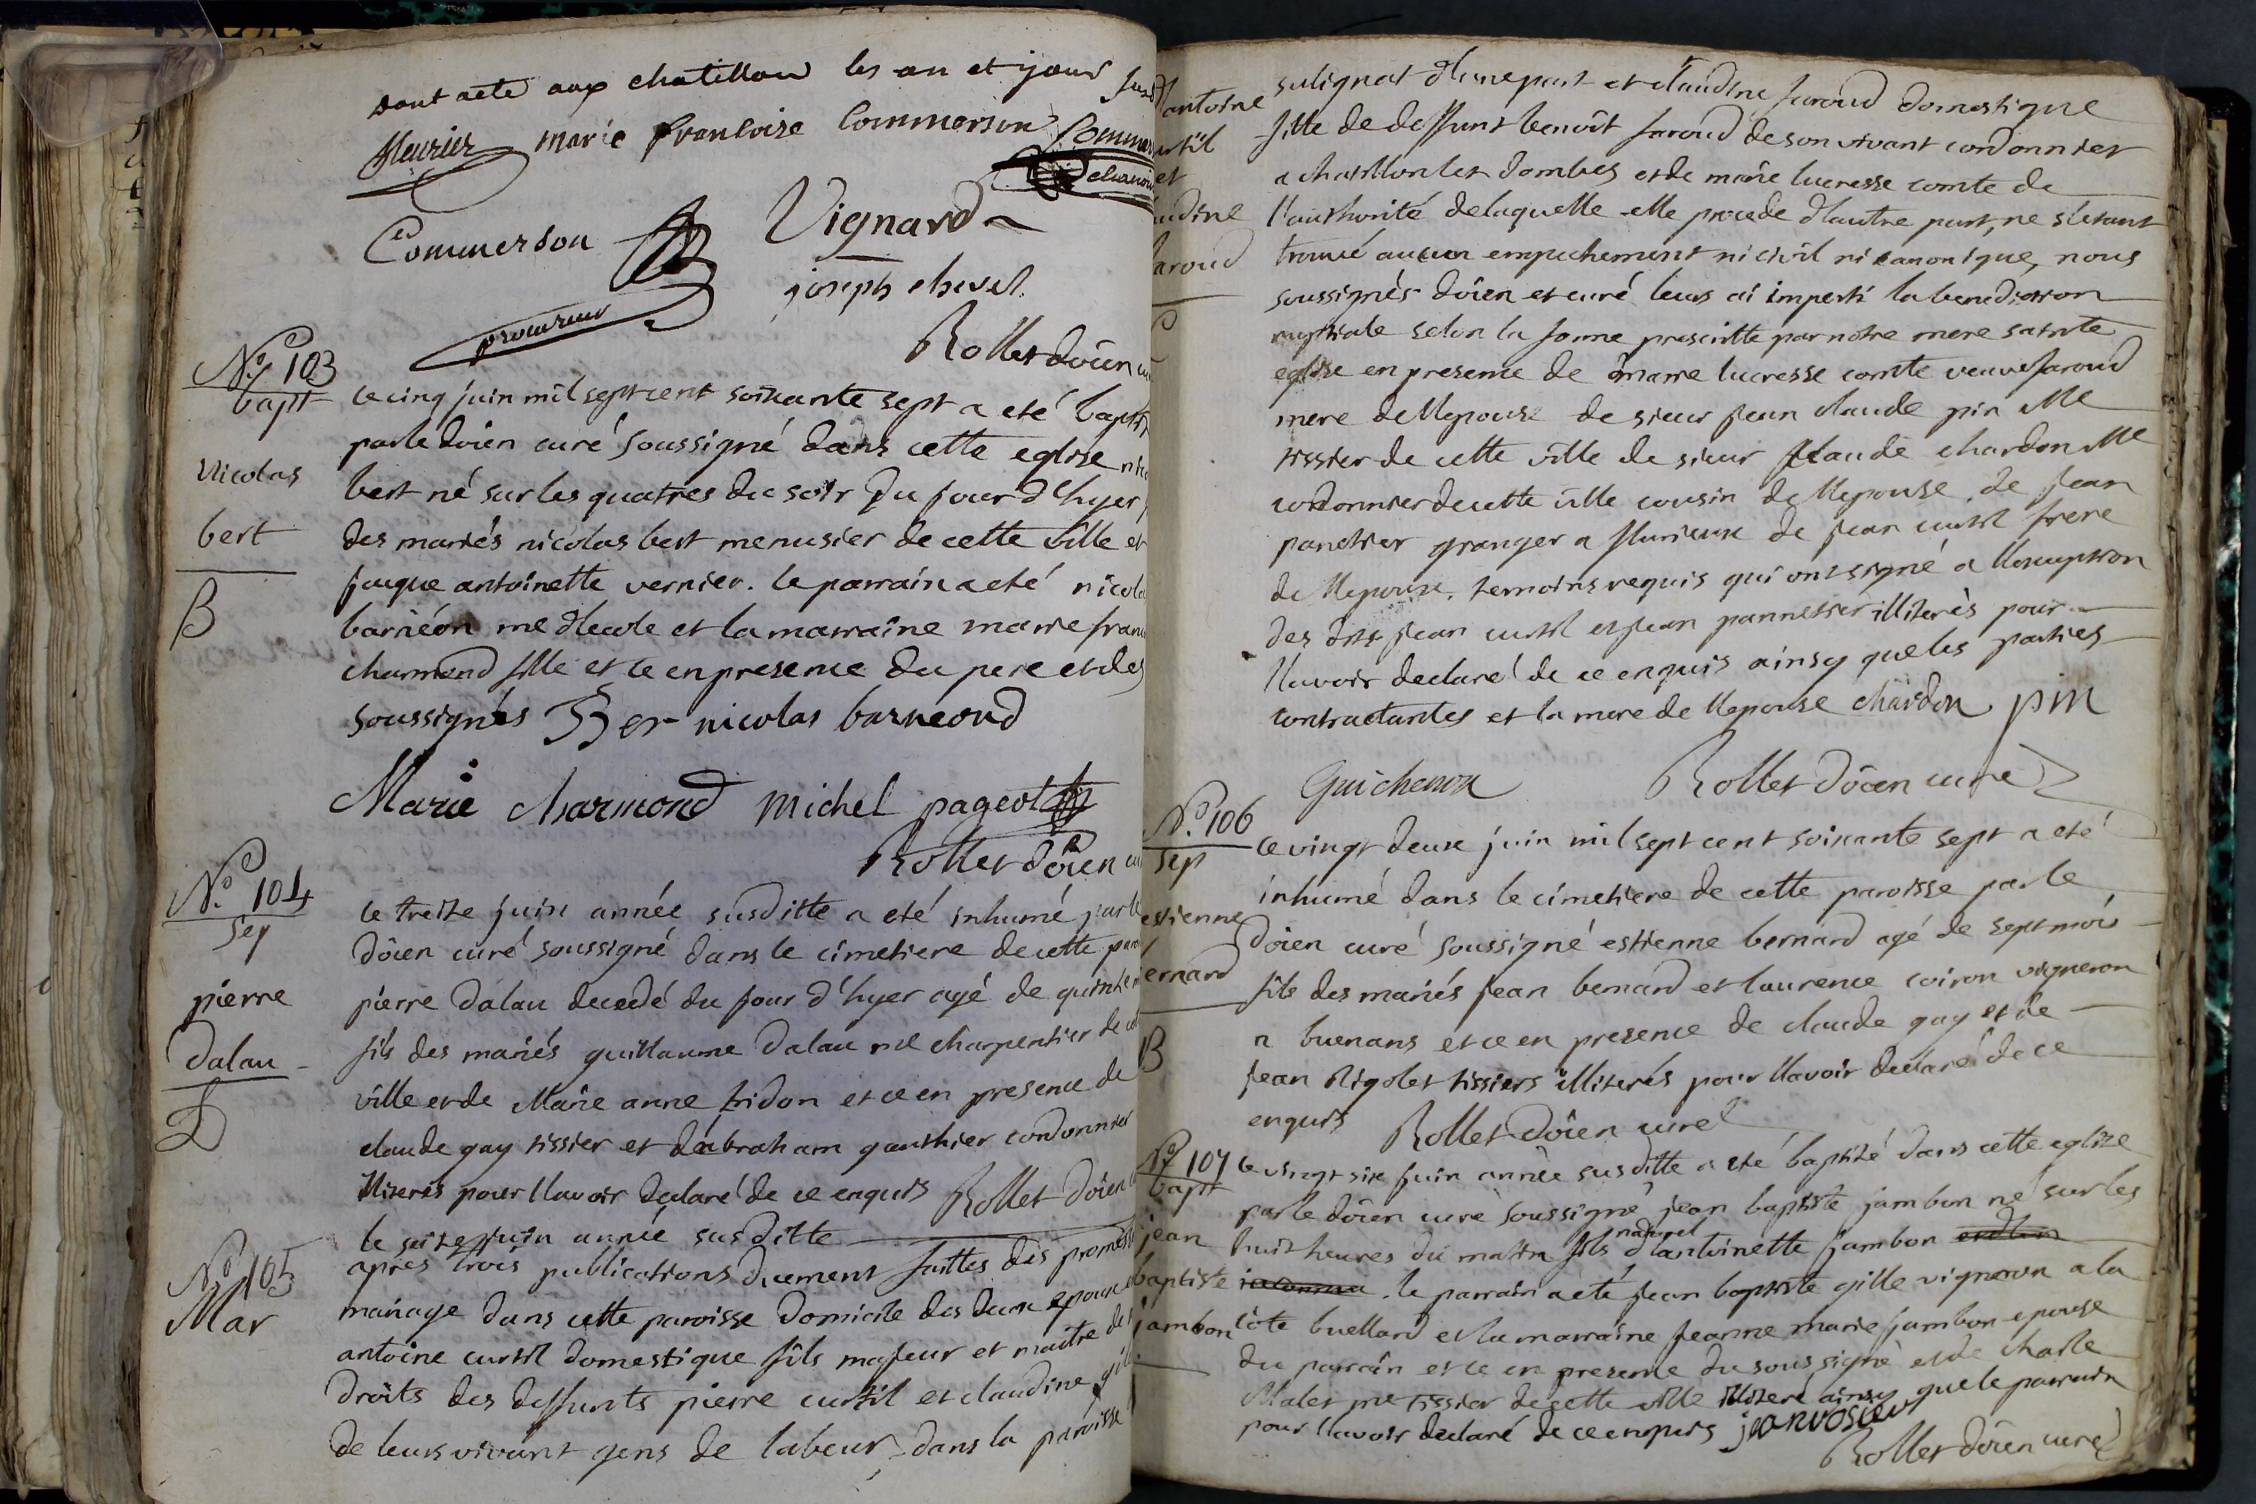 dont acte aux chatillon les an et jour susd
fleurier marie francoise Commerson Commer
Commerson Vignard
joseph chevel
procureur
Rollet doîen
N.º 103
bapt
Nicolas
bert
B
le cinq juin mil sept cent soixante sept a eté bapti
par le doîen curé soussigné dans cette eglise nic
bert né sur les quatres du soir du jour d'hyer
des mariés nicolas bert menusier de cette ville et
jaque antoinette vernier. le parrain a eté nicola
barnéon me d'lecole et la marraine marie franc
charmond fille et ce en presence du pere et des
soussignés Ber nicolas barneond
Marie charmond michel pageot
Rollet doîen cu
N.º 104
sep
pierre
dalau
D
le treize juin année susditte a eté inhumé par le
doîen curé soussigné dans le cimetiere de cette par
pierre dalau decedé du jour d'hyer agé de quinze
fils des mariés guillaume dalau me charpentier de
ville et de Marie anne tridon et ce en presence de
claude gay tissier et d'abraham gauthier cordonnier
illiterés pour llavoir declaré de ce enquis Rollet doîen
N.º 105
Mar
le seize juin année susditte
apres trois publications duement faittes des promess
mariage dans cette paroisse domicile des deux epoux
antoine curtil domestique fils majeur et maitre de
droits des deffunts pierre curtil et claudine
de leurs vivant gens de labeur dans la paroisse
antoine
urtil
et
udine
aroud
sulignat d'une part et claudine faroud domestique
fille de deffunt benoît faroud de son vivant cordonnier
a chatillon les dombes et de marie lucresse comte de
l'authorité de laquelle elle procede d'lautre part, ne s'etant
trouvé aucun empechement ni civil ni canonique, nous
soussignés doîen et curé leurs ai imparti la benediction
nuptiale selon la forme prescritte par notre mere sainte
eglise en presence de marie lucresse comte veuve faroud
mere de llepouse de sieur jean claude pin Me
tissier de cette ville de sieur claude chardon Me
cordonnier de cette ville cousin de llepouse, de jean
panetier granger a flurieux de jean curtil frere
de llepoux. temoins requis qui ont signé a llexception
des dits jean curtil et jean pannetier illiterés pour
llavoir declaré de ce enquis ainsy que les parties
contractantes et la mere de llepouse chardon pin
Guichenon Rollet doîen curé
N.º 106
sep
estienne
ernard
B
le vingt deux juin mil sept cent soixante sept a eté
inhumé dans le cimetiere de cette paroisse par le
doîen curé soussigné estienne bernard agé de sept mois
fils des mariés jean bernard et laurence coiron vigneron
a buenans et ce en presence de claude gay et de
jean Rigolet tissiers illiterés pour llavoir declaré de ce
enquis Rollet doîen curé
Nº 107
bapt
jean
baptiste
jambon
le vingt six juin année susditte a eté baptizé dans cette eglise
par le doîen curé soussigné jean baptiste jambon né sur les
huit heures du matin fils naturel d'antoinette jambon
inconnu. le parrain a eté jean baptiste gille vigneron a la
côte buellard et la marraine jeanne marie jambon epouse
du parrain et ce en presence du soussigné et de charle
Malet me tissier de cette ville illiteré ainsy que le parrain
pour llavoir declaré de ce enquis
Rollet doîen curé